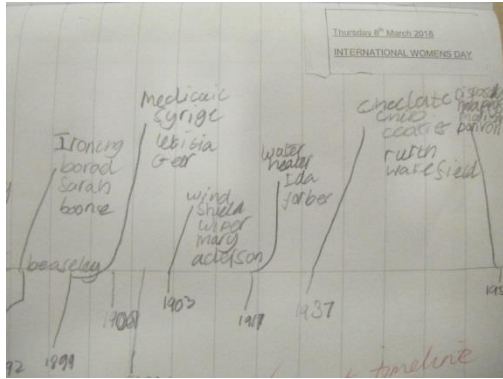 Thursday 8th March 2018
INTERNATIONAL WOMENS DAY
Ironing
borad
Sarah
boone
beaseley
Medicaic
Syrige
letisia
Geer
wind
shield
wiper
mary
aderson
water
heater
Ida
forber
Choclate
chip
cookies
ruth
wakefield
Disposable
1899
1903
1917
1937
timeline